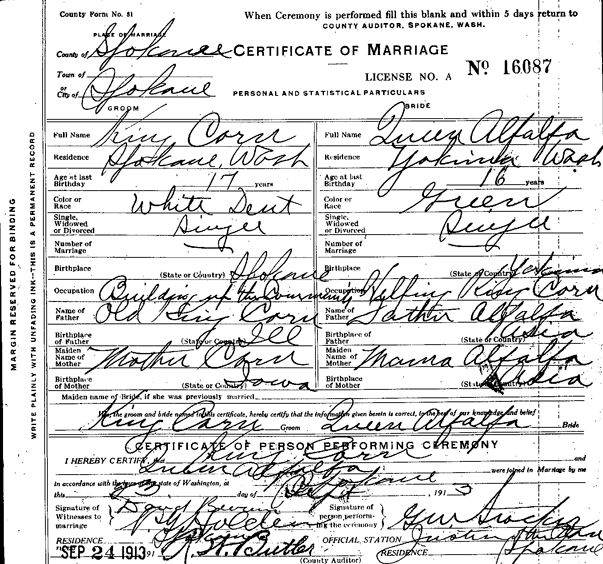 County Form No. 51
When Ceremony is performed fill this blank and within 5 days return to
COUNTY AUDITOR, SPOKANE, WASH.
PLACE OF MARRIAGE
County of Spokane
CERTIFICATE OF MARRIAGE
Town of
or
City of Spokane
LICENSE NO. A Nº 16087
PERSONAL AND STATISTICAL PARTICULARS
GROOM BRIDE
Full Name King Corn Full Name Queen Alfalfa
Residence Spokane, Wash Residence Yakima Wash
Age at last Birthday 17 years Age at last Birthday 16 years
Color or Race White Dent Color or Race Green
Single, Widowed or Divorced Single Single, Widowed or Divorced Single
Number of Marriage Number of Marriage
Birthplace (State or Country) Spokane Birthplace (State or Country) Yakima
Occupation Building up the Community Occupation Helping King Corn
Name of Father Old King Corn Name of Father Father Alfalfa
Birthplace of Father (State or Country) Ill Birthplace of Father (State or Country) Asia
Maiden Name of Mother Mother Corn Maiden Name of Mother Mama Alfalfa
Birthplace of Mother (State or Country) Iowa Birthplace of Mother (State or Country) Asia
Maiden name of Bride, if she was previously married
We, the groom and bride named in this certificate, hereby certify that the information given herein is correct, to the best of our knowledge and belief
King Corn Groom Queen Alfalfa Bride
CERTIFICATE OF PERSON PERFORMING CEREMONY
I HEREBY CERTIFY, that King Corn and
Queen Alfalfa were joined in Marriage by me
in accordance with the laws of the state of Washington, at Spokane
this 23 day of Sept 1913
Signature of Witnesses to marriage
Signature of person performing the ceremony
RESIDENCE Spokane
OFFICIAL STATION
SEP 24 1913 191
RESIDENCE Spokane
(County Auditor)
MARGIN RESERVED FOR BINDING
WRITE PLAINLY WITH UNFADING INK—THIS IS A PERMANENT RECORD